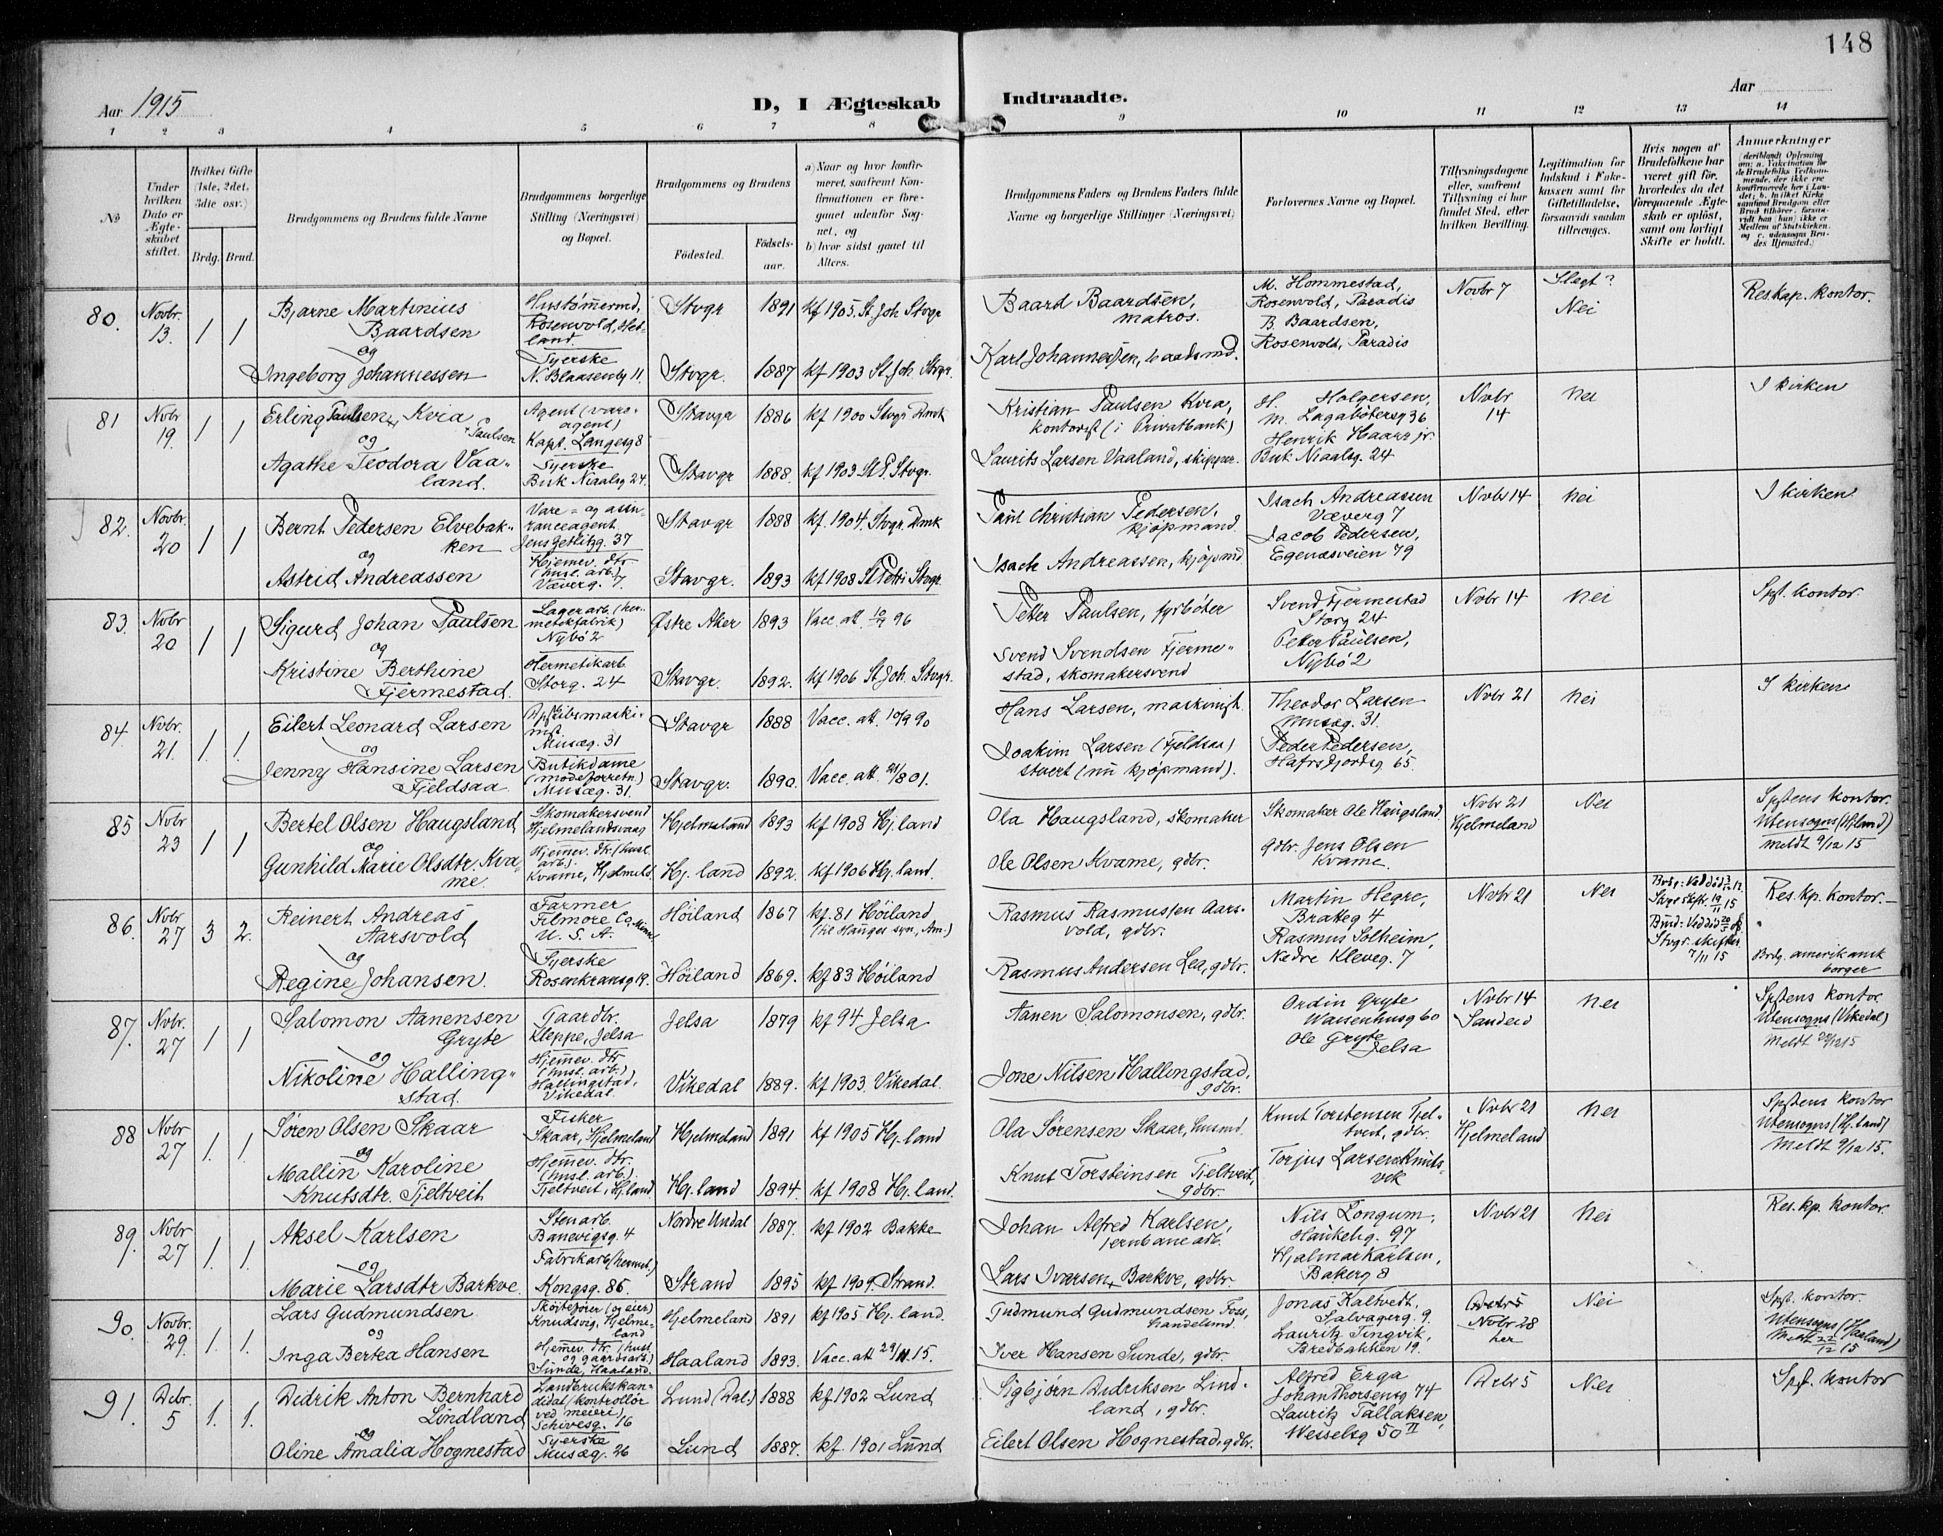 148
Aar 1915
D, I Ægteskab Indtraadte.
Aar
1 2 3 4 5 6 7 8 9 10 11 12 13 14
№
Under hvilken Dato er Ægteskabet stiftet.
Hvilket Gifte (1ste, 2det, 3die osv.)
Brdg. Brud.
Brudgommens og Brudens fulde Navne
Brudgommens borgerlige Stilling (Næringsvei) og Bopæl.
Brudgommens og Brudens
Födested. Födsels-aar.
a) Naar og hvor konfirmeret, saafremt Konfirmationen er foregaaet udenfor Sognet, og
b) hvor sidst gaaet til Alters.
Brudgommens Faders og Brudens Faders fulde Navne og borgerlige Stillinger (Næringsvei)
Forlovernes Navne og Bopæl.
Tillysningsdagene eller, saafremt Tillysning ei har fundet Sted, efter hvilken Bevilling.
Legitimation for Indskud i Enkekassen samt for Giftetilladelse, forsaavidt saadan tiltrænges.
Hvis nogen af Brudefolkene har været gift för, hvorledes da det foregaaende Ægteskab er oplöst, samt om lovligt Skifte er holdt.
Anmerkninger
80. Novbr. 13. 1 1 Bjarne Martinius Baardsen Rosenvold, Hetland. Stvgr 1891 kf 1905 St. Joh Stvgr Baard Baardsen, matros. M. Hommestad, Rosenvold, Paradis B. Baardsen, Rosenvold, Paradis Novbr 7 Slegt? Nei Res. kap. kontor.
og
Ingeborg Johannessen Syerske N. Blaasenbg 11. Stvgr. 1887 kf 1903 St. Joh. Stvgr. Karl Johannessen, baadsmd.
81 Nvbr 19. 1 1 Erling Paulsen Kvia Paulsen Agent (vareagent) Kapt. Langesg 8 Stavgr 1886 kf 1900 Stvgr Dmk Kristian Paulsen Kvia, kontorist (i Privatbank) H. Holgersen, M. Lagabötersg 36 Henrik Haarr jr. Buk. Niaalsg. 24 Nvbr 14 Nei I kirken
og
Agathe Teodora Vaaland. Syerske Buk Niaalsg 24. Stavgr 1888. kf 1903 St P. Stvgr. Laurits Larsen Vaaland, skipper.
82. Novbr. 20 1 1 Bernt Pedersen Elvebakken Vare- og assuranceagent Jens Zetlitzg. 37 Stavgr 1888 kf. 1904. Stvgr. Dmk Paul Christian Pedersen, kjöpmand. Isach Andreassen Væverg 7 Jacob Pedersen, Egenæsveien 79 Nvbr 14 Nei I kirken
og
Astrid Andreassen Hjemev. dtr. (husl. arb.) Væverg. 7 Stavgr. 1893 kf 1908 St Petri Stvgr. Isach Andreassen, kjöpmd.
83. Nvbr 20 1 1 Sigurd Johan Paulsen Lagerarb. (hermetikfabrik) Nybö 2 Östre Aker 1893 Vacc. att. 96 Petter Paulsen, fyrböter Svend Fjermestad Storg 24 Petter Paulsen, Nybö 2 Nvbr 14 Nei Spst. kontor
og
Kristine Berthine Fjermestad. Hermetikarb. Storg. 24 Stavgr. 1892. kf 1906 St. Joh. Stvgr. Svend Svendsen Fjermestad, skomakersvend
84 Nvbr. 21. 1. 1. Eilert Leonard Larsen Musæg. 31 Stavgr 1888 Vacc. att. 10/9 90 Hans Larsen, maskinist. Theodor Larsen Musæg. 31. Peder Pedersen, Hafrsfjordsg 65. Nvbr 21 Nei I kirken
og
Jenny Hansine Larsen Fjeldsaa Butikdame (modeforretn.) Musæg. 31. Stavgr. 1890. Vacc. att. 21/8 01. Joakim Larsen (Fjeldsaa) stuert (nu kjöpmand).
85 Nvbr 23 1 1 Bertel Olsen Haugsland Skomakersvend Hjelmelandsvaag Hjelmeland 1893 kf 1908 Hj. land Ola Haugsland, skomaker Skomaker Ole Haugsland gdbr. Jens Olsen Kvame. Nvbr 21 Hjelmeland Nei Spstens kontor. Utensogns (Hj.land) meldt 9/12 15
og
Gunhild Marie Olsdtr. Kvame. Hjemev. dtr. (husl. arb.) Kvame, Hjelmeld. Hj. land 1892. kf 1906 Hj. land. Ole Olsen Kvame, gdbr.
86. Nvbr 27 3 2. Reinert Andreas Aarsvold Farmer Filmore Co, Minn U. S. A. Höiland 1867 kf. 81 Höiland (til Hauges syn, Am.) Rasmus Rasmussen Aarsvold, gdbr. Martin Hegre, Brakeg 4 Rasmus Solheim, Nedre Kleveg. 7 Nvbr 21 Nei Res. kp. kontor.
og
Regine Johansen. Syerske Rosenkransg 19. Höiland 1869. kf 83 Höiland Rasmus Andersen Lea, gdbr. Stvgr. skifter. 7/11 15 Brdg. amerikansk borger
87. Nvbr. 27 1 1 Salomon Aanensen Gryte Gaardbr. Kleppe, Jelsa Jelsa 1879 kf 94 Jelsa Aanen Salomonsen, gdbr. Ordin Gryte Waisenhusg 60 Ole Gryte Jelsa Nvbr 14 Sandeid Nei Spstens kontor. Utensogns (Vikedal) Meldt
og
Nikoline Hallingstad. Hjemev. dtr. (husl. arb.) Hallingstad, Vikedal. Vikedal 1889. kf 1903. Vikedal. Jone Nilsen Hallingstad, gdbr.
88 Nvbr 27 1. 1. Sören Olsen Skaar Fisker Skaar, Hjelmeland Hjelmeland 1891 kf 1905 Hj. land Ola Sörensen Skaar, husmd. Knut Torstensen Tjeltveit, gdbr. Torjus Larsen Knutsvik Nvbr 21 Hjelmeland Nei Spstens kontor Utensogns (Hj. land) Meldt 9/12 15.
og
Mallin Karoline Knutsdtr. Tjeltveit Hjemev. dtr. (husl. arb.) Tjeltveit, Hj.land Hj. land 1894. kf 1908 Hj. land. Knut Torsteinsen Tjeltveit, gdbr.
89. Nvbr 27 1. 1. Aksel Karlsen Stenarb. Banevigsg. 4 Nordre Undal 1887. kf 1902 Bakke Johan Alfred Karlsen, jernbanearb. Nils Longum, Haukelig. 97 Hjalmar Karlsen, Bakerg 8 Nvbr 21 Nei Res. kp. kontor.
og
Marie Larsdtr Barkve. Fabrikarb (hermet.) Kongsg. 86. Strand 1895 kf 1909 Strand. Lars Iversen Barkve, gdbr.
90. Novbr. 29. 1. 1. Lars Gudmundsen Sköiteförer (og eier) Knudsvig, Hjelmeland Hjelmeland 1891 kf 1905 Hj. land. Gudmund Gudmundsen Foss, handelsmd. Jonas Kaltvedt, Salvagerg. 9. Lauritz Tingvik, Bredbakken 19. Debr 5 Nvbr 28 her Nei Spst. kontor. Utensogns (Haaland) Meldt 22/12 15
og
Inga Bertea Hansen Hjemev. dtr. (husl. og gaardsarb.) Sunde, Haaland. Haaland 1893. Vacc. att 29/11 15. Iver Hansen Sunde, gdbr.
91. Debr. 5 1. 1. Didrik Anton Bernhard Lindland Landbrukskandidat (kontrollör ved meieri) Schivesg. 16 Lund (Dal.) 1888 kf 1902 Lund Sigbjörn Didriksen Lindland, gdbr. Alfred Erga Johan Thorsensg 74 Lauritz Tallaksen, Wesselsg 50 II Debr 5 Nei Spst. kontor
og
Oline Amalia Hognestad Syerske Musæg. 26 Lund 1887. kf. 1901 Lund Eilert Olsen Hognestad, gdbr.